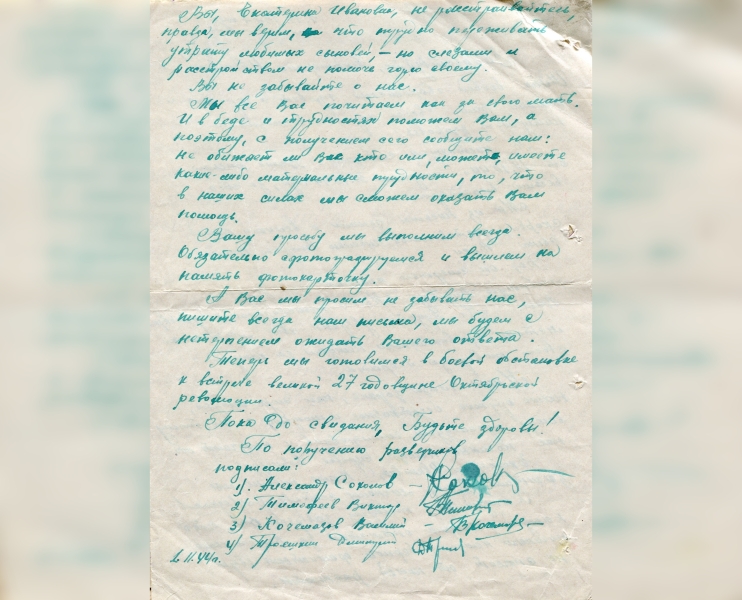 Вы, Екатерина Ивановна, не расстраивайтесь,
правда, мы верим, что трудно переживать
утрату любимых сыновей, – но слезами и
расстройством не помочь горю своему.
Вы не забывайте о нас.
Мы все Вас почитаем как за свою мать.
И в беде и трудностях поможем Вам, а
поэтому, с получением сего сообщите нам:
не обижает ли Вас кто или, может, имеете
какие-либо материальные трудности, то, что
в наших силах мы сможем оказать Вам
помощь.
Вашу просьбу мы выполним всегда.
Обязательно сфотографируемся и вышлем на
память фотокарточку.
А Вас мы просим не забывать нас,
пишите всегда нам письма, мы будем с
нетерпением ожидать Вашего ответа.
Теперь мы готовимся в боевой обстановке
к встрече великой 27 годовщине Октябрьской
революции.
Пока До свидания, Будьте здоровы!
По поручению разведчиков
подписали:
1). Александр Соколов –
2) Тимофеев Виктор
3) Кочемазов Василий –
4) Трояшкин Дмитрий
11.44г.